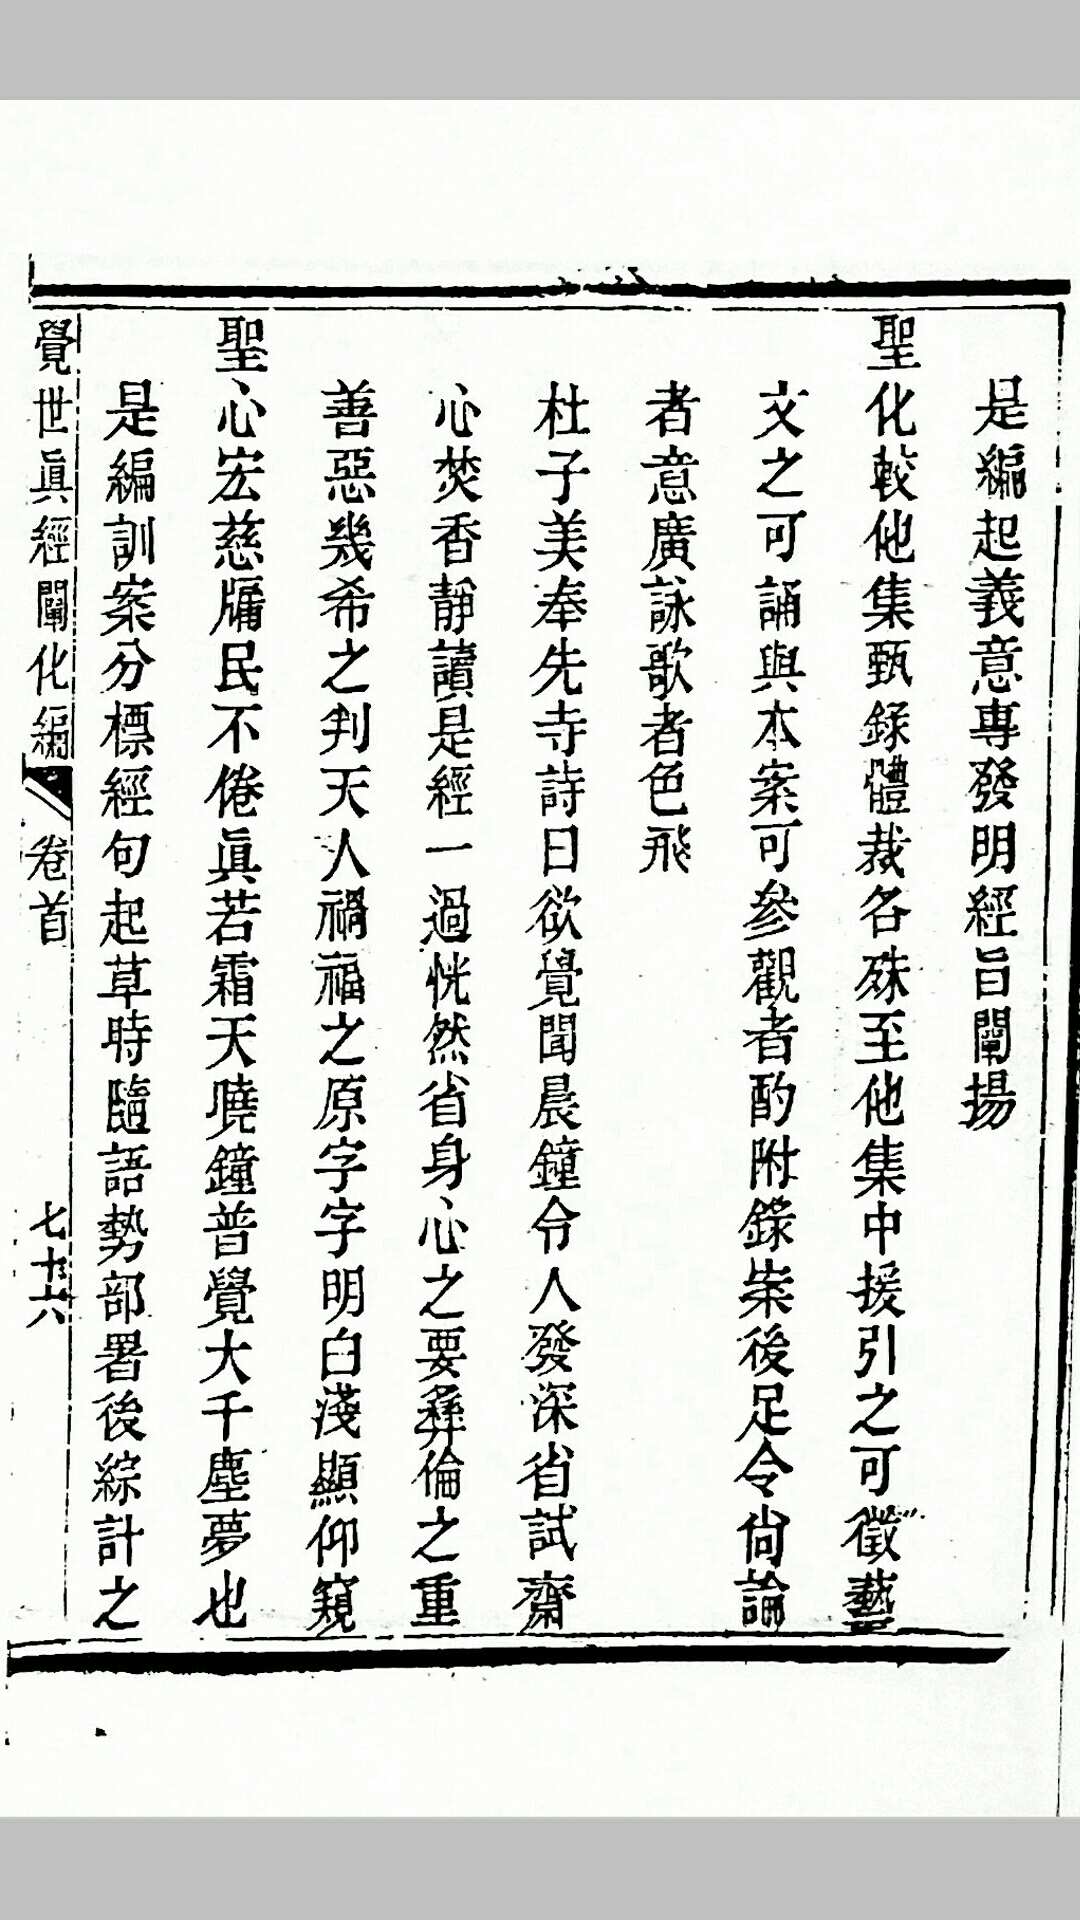 是編起義意專發明經旨闡揚
聖化較他集甄錄體裁各殊至他集中援引之可徵藝
文之可誦與本案可參觀者酌附錄案後足令尙論
者意廣詠歌者色飛
杜子美奉先寺詩曰欲覺聞晨鐘令人發深省試齋
心焚香靜讀是經一過恍然省身心之要彝倫之重
善惡幾希之判天人禍福之原字字明白淺顯仰窺
聖心宏慈牖民不倦眞若霜天曉鐘普覺大千塵夢也
是編訓案分標經句起草時隨語勢部署後綜計之
覺世眞經闡化編 卷首 七十六